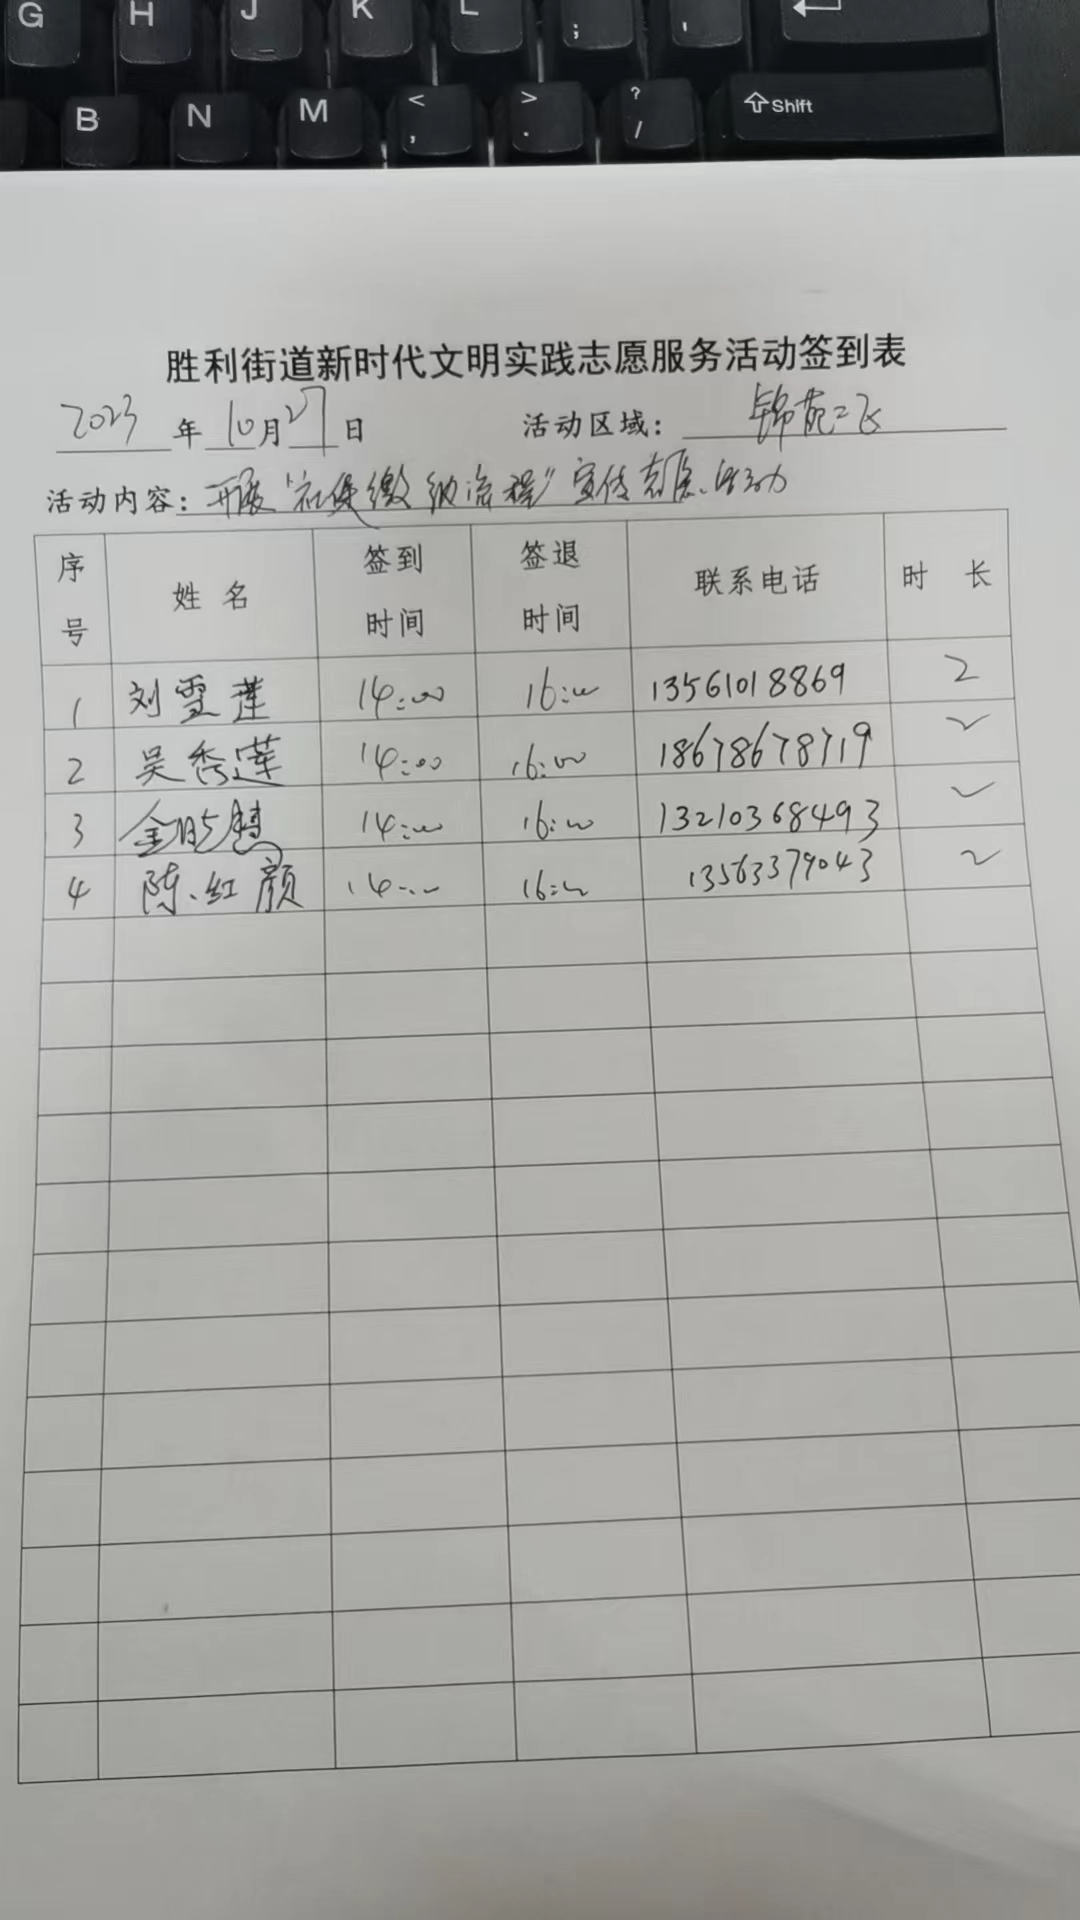 G H J K L ; '
B N M < , > . ? / Shift
胜利街道新时代文明实践志愿服务活动签到表
2023 年 10 月 27 日 活动区域: 锦苑二
活动内容: 开展“社保缴纳流程”宣传志愿活动
序号 姓名 签到时间 签退时间 联系电话 时长
1 刘雪莲 14:00 16:00 13561018869 2
2 吴秀莲 14:00 16:00 18678678719 2
3 金 14:00 16:00 13210368493 2
4 陈红颜 14:00 16:00 13563379043 2